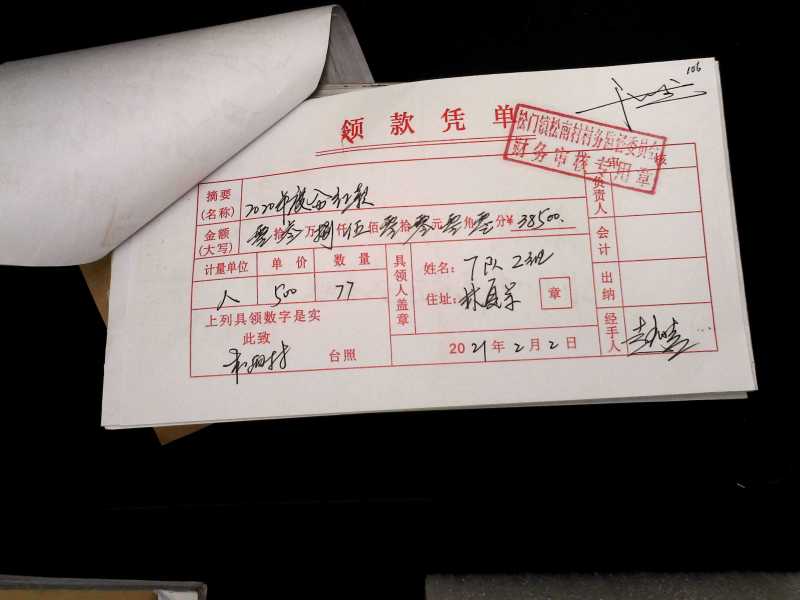 106
领款凭单
松门镇松南村村务监督委员会
财务审核专用章
摘要(名称) 2020年度分红款
金额(大写) 零拾叁万捌仟伍佰零拾零元零角零分¥ 38500.
计量单位 单价 数量
人 500 77
上列具领数字是实
此致
台照
具领人盖章
姓名: 7队2班
住址: 章
2021年2月2日
审核
负责人
会计
出纳
经手人